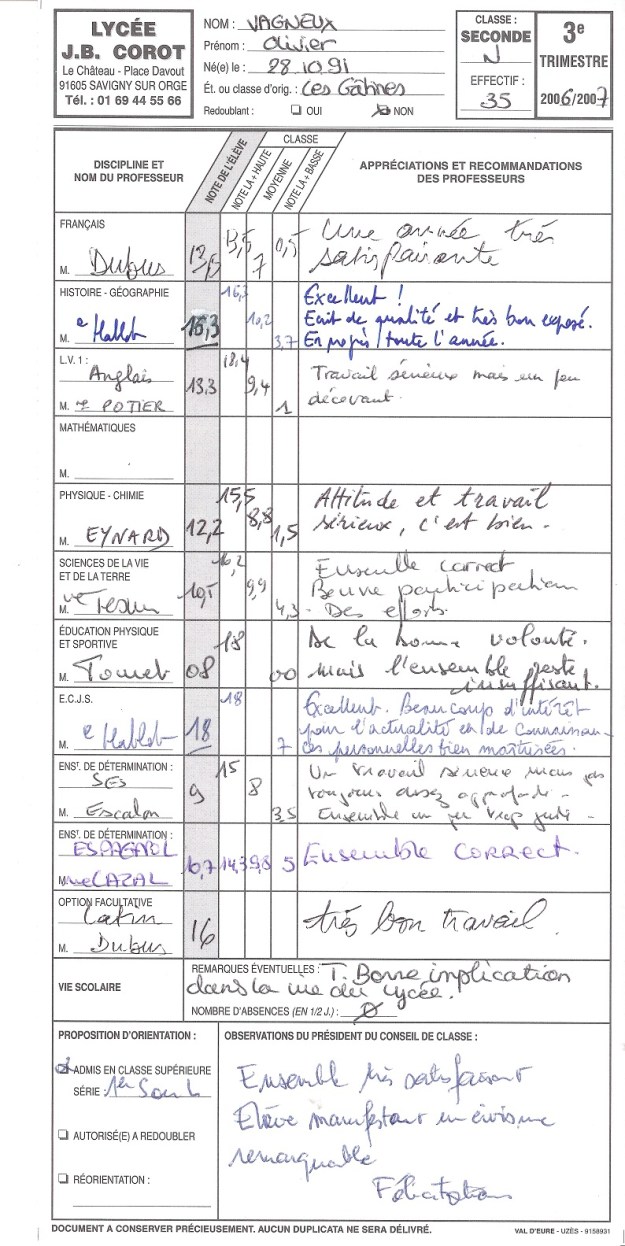 LYCÉE
J.B. COROT
Le Château - Place Davout
91605 SAVIGNY SUR ORGE
Tél. : 01 69 44 55 66
NOM : VAGNEUX
Prénom : Olivier
Né(e) le : 28.10.91
Ét. ou classe d'orig. : Les Gâtines
Redoublant : OUI NON
CLASSE :
SECONDE
N
EFFECTIF :
35
3e
TRIMESTRE
2006/2007
DISCIPLINE ET
NOM DU PROFESSEUR
NOTE DE L'ÉLÈVE
CLASSE
NOTE LA + HAUTE
MOYENNE
NOTE LA + BASSE
APPRÉCIATIONS ET RECOMMANDATIONS
DES PROFESSEURS
FRANÇAIS
M. Dubus
13,5 13,5 7 0,5
Une année très
satisfaisante
HISTOIRE - GÉOGRAPHIE
M.
16,3 16,3 10,2 3,7
Excellent !
Ecrit de qualité et très bon exposé.
En progrès toute l'année.
L.V. 1 :
Anglais
M. POTIER
13.3 18,4 9,4 1
Travail sérieux mais un peu
décevant.
MATHÉMATIQUES
M.
PHYSIQUE - CHIMIE
M. EYNARD
12,2 15,5 8,8 1,5
Attitude et travail
sérieux, c'est bien.
SCIENCES DE LA VIE
ET DE LA TERRE
M.
16,2 9,9 4,3
Ensemble correct
Bonne participation
Des efforts.
ÉDUCATION PHYSIQUE
ET SPORTIVE
M.
08 18 00
De la bonne volonté.
Mais l'ensemble reste
insuffisant.
E.C.J.S.
M.
18 18 7
Excellent. Beaucoup d'intérêt
pour l'actualité et de connaissan-
ces personnelles bien maîtrisées.
ENST. DE DÉTERMINATION :
SES
M. Escalon
9 15 8 3,5
Un travail sérieux mais pas
toujours assez approfondi.
Ensemble un peu trop juste.
ENST. DE DÉTERMINATION :
ESPAGNOL
Mme CAZAL
10,7 14,3 9,8 5
Ensemble CORRECT.
OPTION FACULTATIVE
Latin
M. Dubus
16
très bon travail.
VIE SCOLAIRE
REMARQUES ÉVENTUELLES : T. Bonne implication
dans la vie du lycée.
NOMBRE D'ABSENCES (EN 1/2 J.) :
PROPOSITION D'ORIENTATION :
ADMIS EN CLASSE SUPÉRIEURE
SÉRIE :
AUTORISÉ(E) A REDOUBLER
RÉORIENTATION :
OBSERVATIONS DU PRÉSIDENT DU CONSEIL DE CLASSE :
Ensemble très satisfaisant
Elève manifestant un civisme
remarquable
Félicitations
DOCUMENT A CONSERVER PRÉCIEUSEMENT. AUCUN DUPLICATA NE SERA DÉLIVRÉ.
VAL D'EURE - UZÈS - 9158931